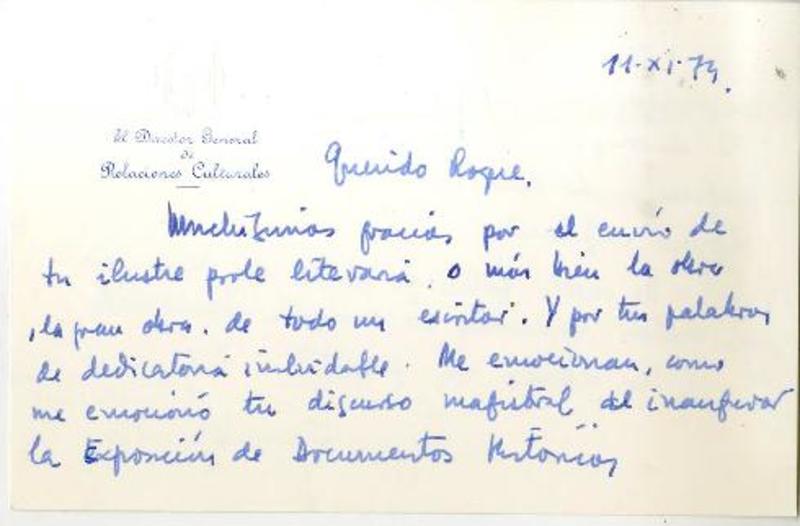 11-XI-74.
El Director General
de
Relaciones Culturales
Querido Roque,
Muchísimas gracias por el envío de
tu ilustre prole literaria, o más bien la obra
, la gran obra, de todo un escritor. Y por tus palabras
de dedicatoria inolvidable. Me emocionan, como
me emocionó tu discurso magistral al inaugurar
la Exposición de Documentos Históricos